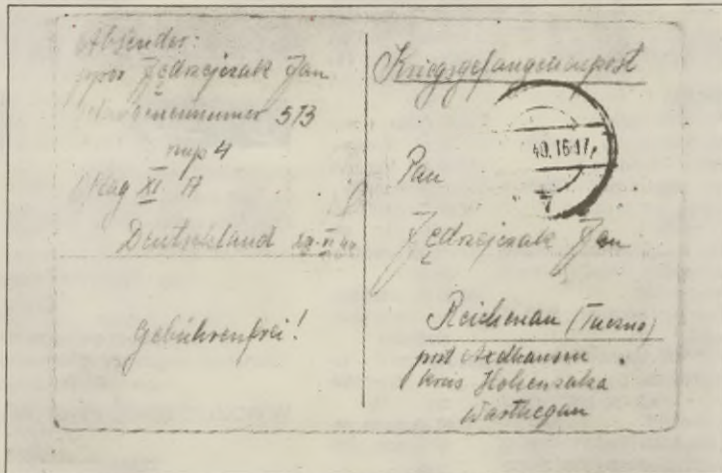 Absender:
ppor Jędrzejczak Jan
Gefangenennummer 573
Oflag XI A
Deutschland
Gebührenfrei!
Kriegsgefangenenpost
40.16-17
Pan
Jędrzejczak Jan
Reichenau (Tuczno)
post
Kreis Hohensalza
Warthegau